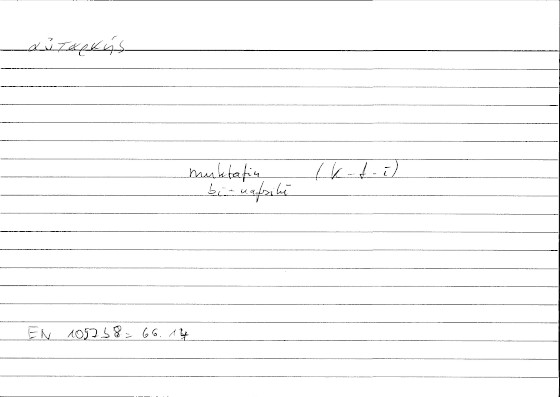 αὐταρκής
muktafin (k-f-ī)
bi-nafsihī
EN 1097b8 = 66.14